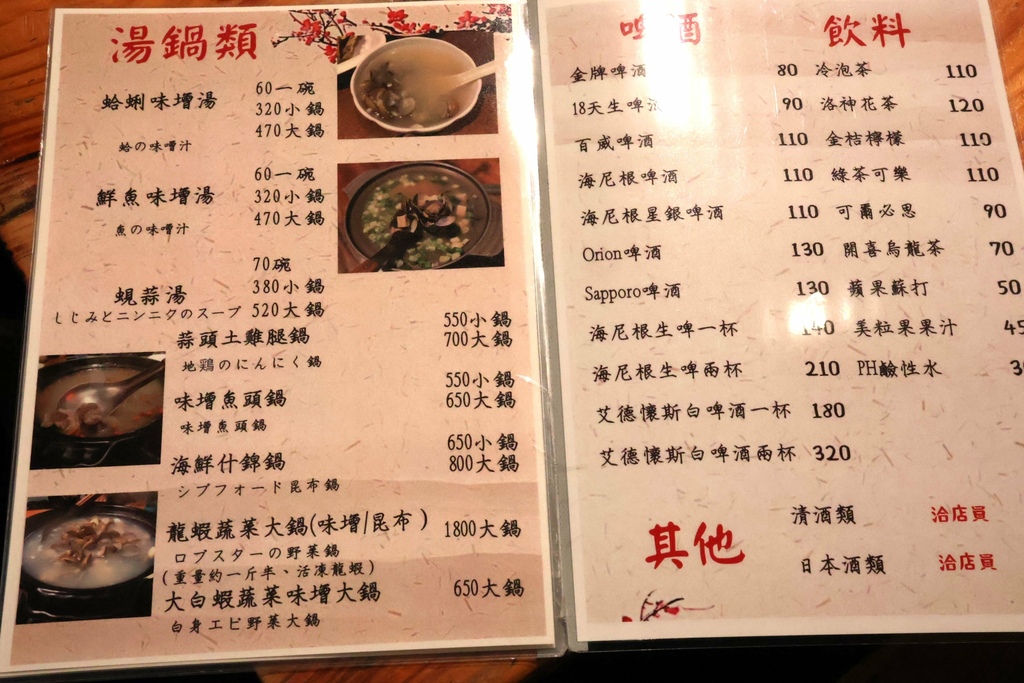 湯鍋類
60一碗
蛤蜊味增湯 320小鍋
470大鍋
蛤の味噌汁
60一碗
鮮魚味增湯 320小鍋
470大鍋
魚の味噌汁
70碗
380小鍋
蜆蒜湯
しじみとニンニクのスープ 520大鍋
550小鍋
蒜頭土雞腿鍋 700大鍋
地鶏のにんにく鍋
550小鍋
味增魚頭鍋 650大鍋
味増魚頭鍋
650小鍋
海鮮什錦鍋 800大鍋
シブフォード昆布鍋
龍蝦蔬菜大鍋(味增/昆布) 1800大鍋
ロブスターの野菜鍋
(重量約一斤半、活凍龍蝦)
大白蝦蔬菜味增大鍋 650大鍋
白身エビ野菜大鍋
啤酒
金牌啤酒 80
18天生啤 90
百威啤酒 110
海尼根啤酒 110
海尼根星銀啤酒 110
Orion啤酒 130
Sapporo啤酒 130
海尼根生啤一杯 140
海尼根生啤兩杯 210
艾德懷斯白啤酒一杯 180
艾德懷斯白啤酒兩杯 320
飲料
冷泡茶 110
洛神花茶 120
金桔檸檬 110
綠茶可樂 110
可爾必思 90
開喜烏龍茶 70
蘋果蘇打 50
美粒果果汁 45
PH鹼性水
其他
清酒類 洽店員
日本酒類 洽店員